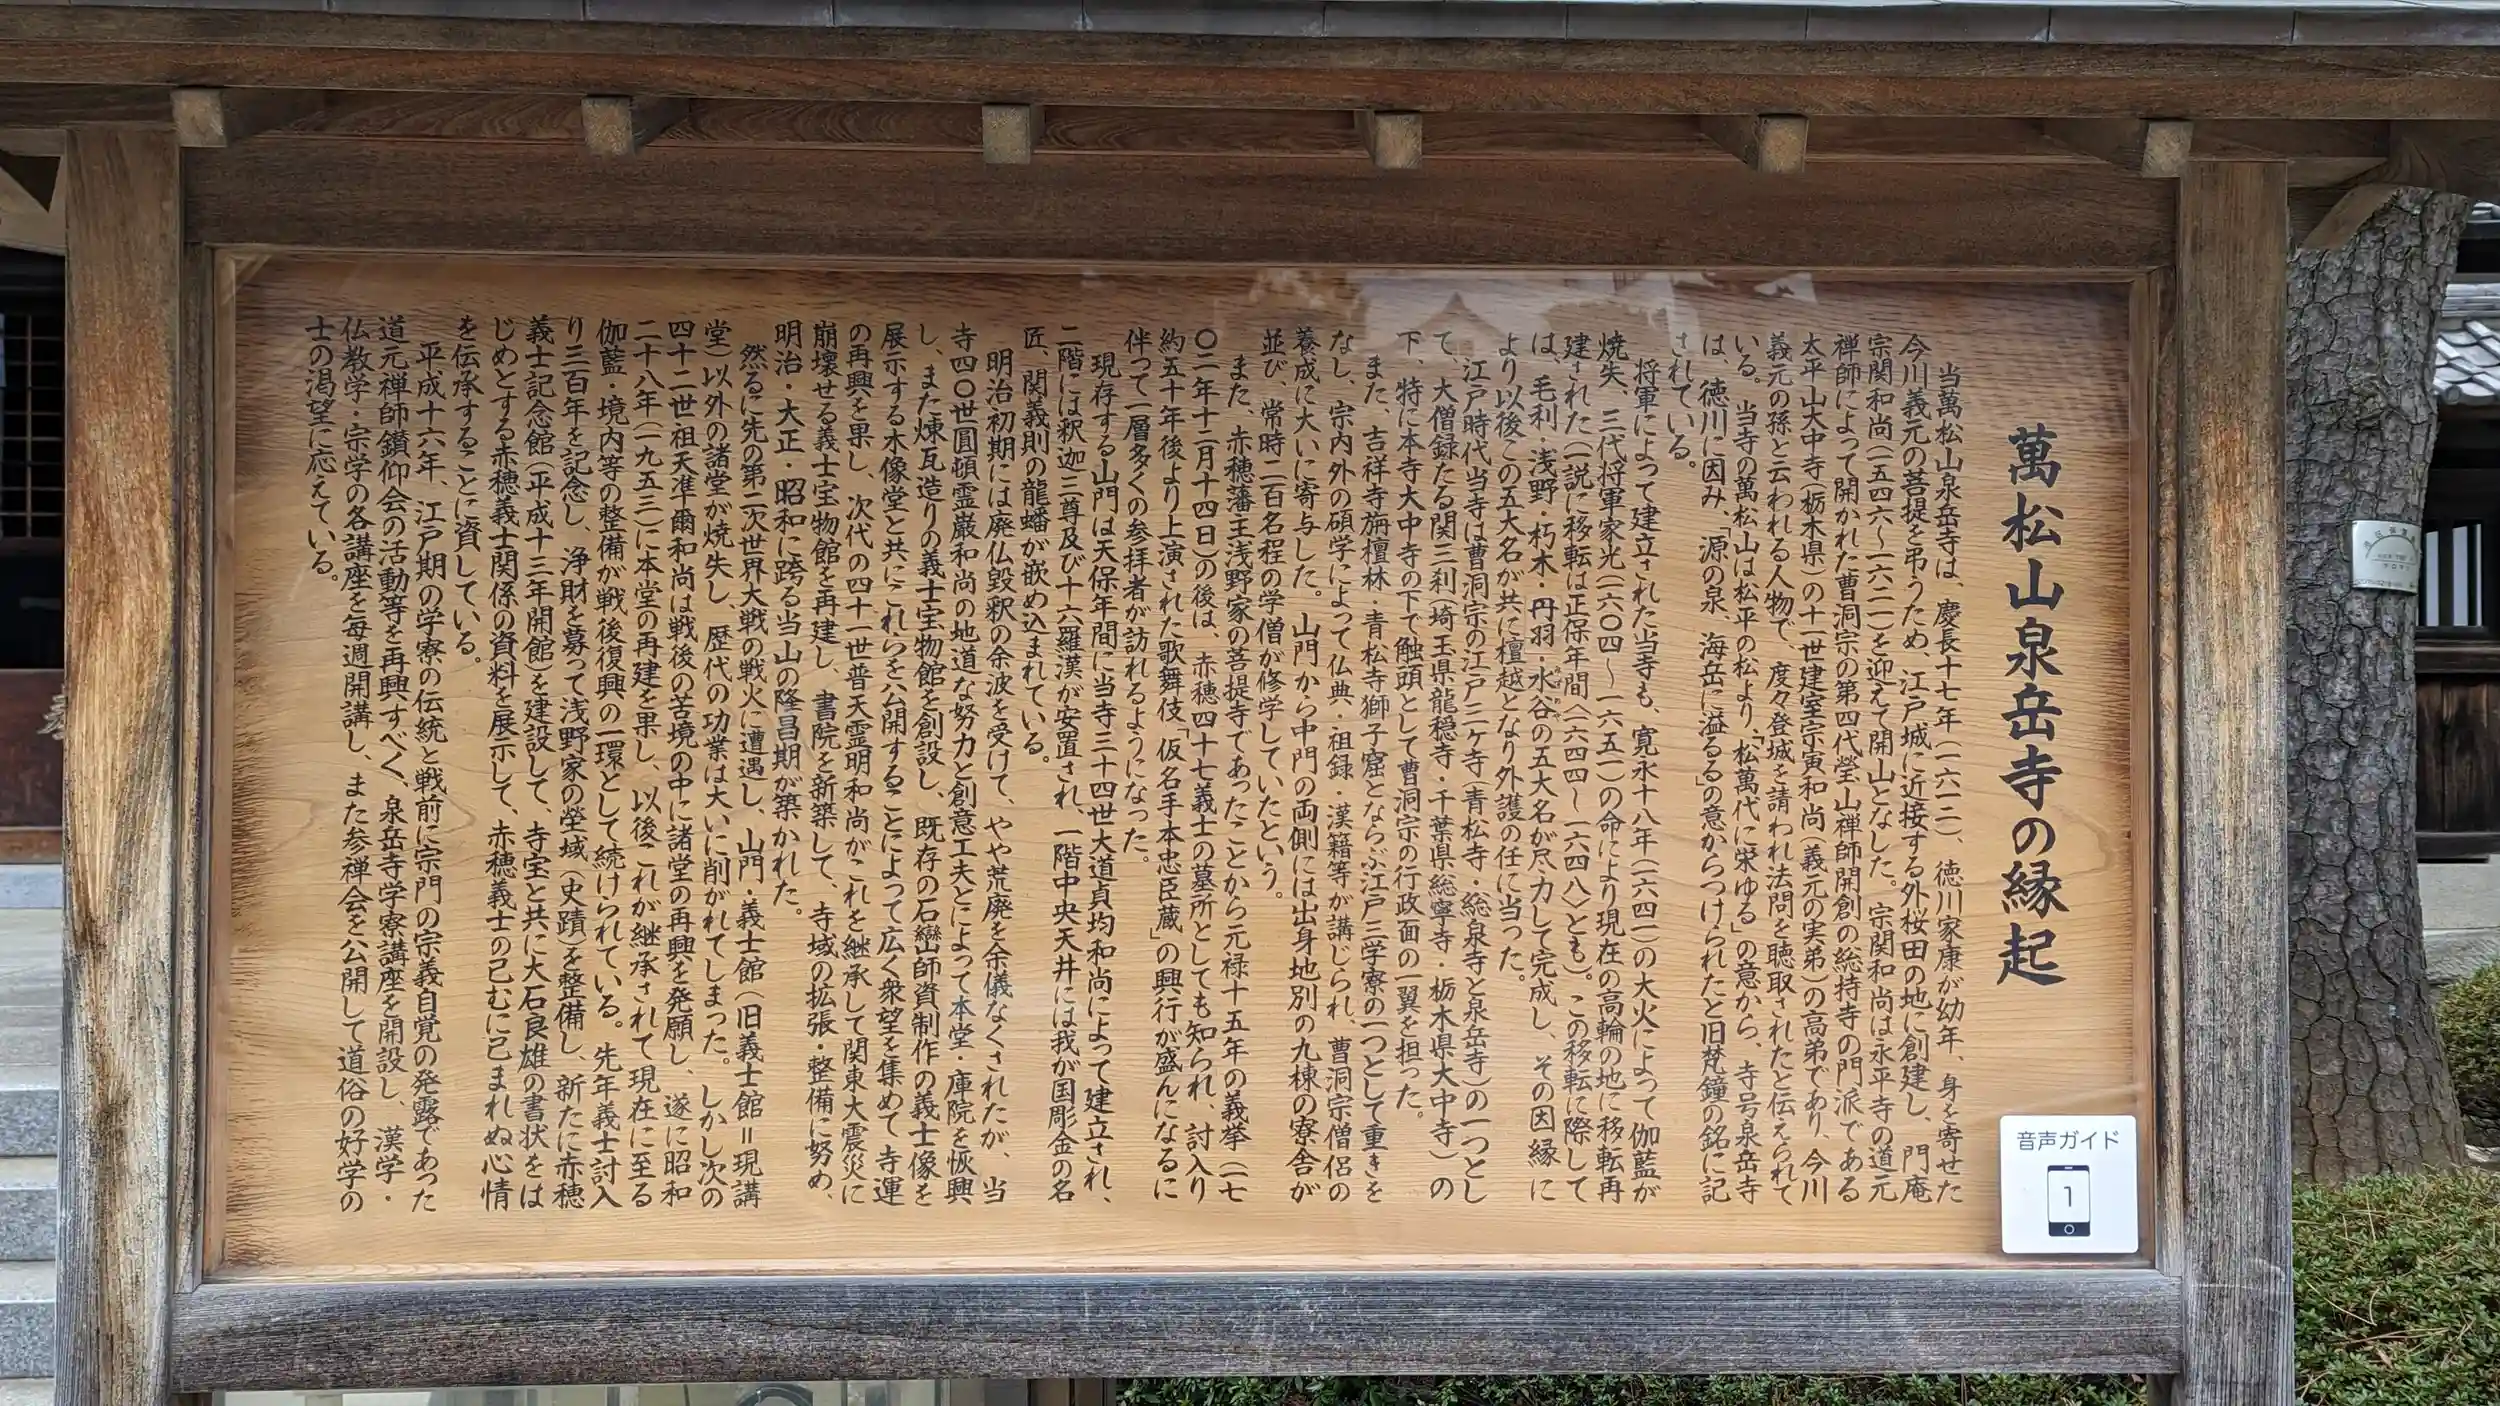 萬松山泉岳寺の縁起
当萬松山泉岳寺は、慶長十七年（一六一二）、徳川家康が幼年、身を寄せた
今川義元の菩提を弔うため、江戸城に近接する外桜田の地に創建し、門庵
宗関和尚（一五四六〜一六二一）を迎えて開山となした。宗関和尚は永平寺の道元
禅師によって開かれた曹洞宗の第四代瑩山禅師開創の総持寺の門派である
太平山大中寺（栃木県）の十一世建室宗寅和尚（義元の実弟）の高弟であり、今川
義元の孫と云われる人物で、度々登城を請われ法問を聴取されたと伝えられて
いる。当寺の萬松山は松平の松より、「松萬代に栄ゆる」の意から、寺号泉岳寺
は、徳川に因み、「源の泉、海岳に溢るる」の意からつけられたと旧梵鐘の銘に記
されている。
将軍によって建立された当寺も、寛永十八年（一六四一）の大火によって伽藍が
焼失、三代将軍家光（一六〇四〜一六五一）の命により現在の高輪の地に移転再
建された（一説に移転は正保年間〈一六四四〜一六四八〉とも）。この移転に際して
は、毛利・浅野・朽木・丹羽・水谷の五大名が尽力して完成し、その因縁に
より以後この五大名が共に檀越となり外護の任に当った。
江戸時代当寺は曹洞宗の江戸三ケ寺（青松寺・総泉寺と泉岳寺）の一つとし
て、大僧録たる関三刹（埼玉県龍穏寺・千葉県総寧寺・栃木県大中寺）の
下、特に本寺大中寺の下で触頭として曹洞宗の行政面の一翼を担った。
また、吉祥寺旃檀林・青松寺獅子窟とならぶ江戸三学寮の一つとして重きを
なし、宗内外の碩学によって仏典・祖録・漢籍等が講じられ、曹洞宗僧侶の
養成に大いに寄与した。山門から中門の両側には出身地別の九棟の寮舎が
並び、常時二百名程の学僧が修学していたという。
また、赤穂藩主浅野家の菩提寺であったことから元禄十五年の義挙（一七
〇二年十二月十四日）の後は、赤穂四十七義士の墓所としても知られ、討入り
約五十年後より上演された歌舞伎「仮名手本忠臣蔵」の興行が盛んになるに
伴って一層多くの参拝者が訪れるようになった。
現存する山門は天保年間に当寺三十四世大道貞均和尚によって建立され、
二階には釈迦三尊及び十六羅漢が安置され、一階中央天井には我が国彫金の名
匠、関義則の龍蟠が嵌め込まれている。
明治初期には廃仏毀釈の余波を受けて、やや荒廃を余儀なくされたが、当
寺四〇世圓頓霊巌和尚の地道な努力と創意工夫とによって本堂・庫院を恢興
し、また煉瓦造りの義士宝物館を創設し、既存の石巒山師資制作の義士像を
展示する木像堂と共にこれらを公開することによって広く衆望を集めて寺運
の再興を果し、次代の四十一世普天霊明和尚がこれを継承して関東大震災に
崩壊せる義士宝物館を再建し、書院を新築して、寺域の拡張・整備に努め、
明治・大正・昭和に跨る当山の隆昌期が築かれた。
然るに先の第二次世界大戦の戦火に遭遇し、山門・義士館（旧義士館＝現講
堂）以外の諸堂が焼失し、歴代の功業は大いに削がれてしまった。しかし次の
四十二世・祖天准爾和尚は戦後の苦境の中に諸堂の再興を発願し、遂に昭和
二十八年（一九五三）に本堂の再建を果し、以後これが継承されて現在に至る
伽藍・境内等の整備が戦後復興の一環として続けられている。先年義士討入
り三百年を記念し、浄財を募って浅野家の塋域（史蹟）を整備し、新たに赤穂
義士記念館（平成十三年開館）を建設して、寺宝と共に大石良雄の書状をは
じめとする赤穂義士関係の資料を展示して、赤穂義士の已むに已まれぬ心情
を伝承することに資している。
平成十六年、江戸期の学寮の伝統と戦前に宗門の宗義自覚の発露であった
道元禅師鑽仰会の活動等を再興すべく、泉岳寺学寮講座を開設し、漢学・
仏教学・宗学の各講座を毎週開講し、また参禅会を公開して道俗の好学の
士の渇望に応えている。
音声ガイド
1